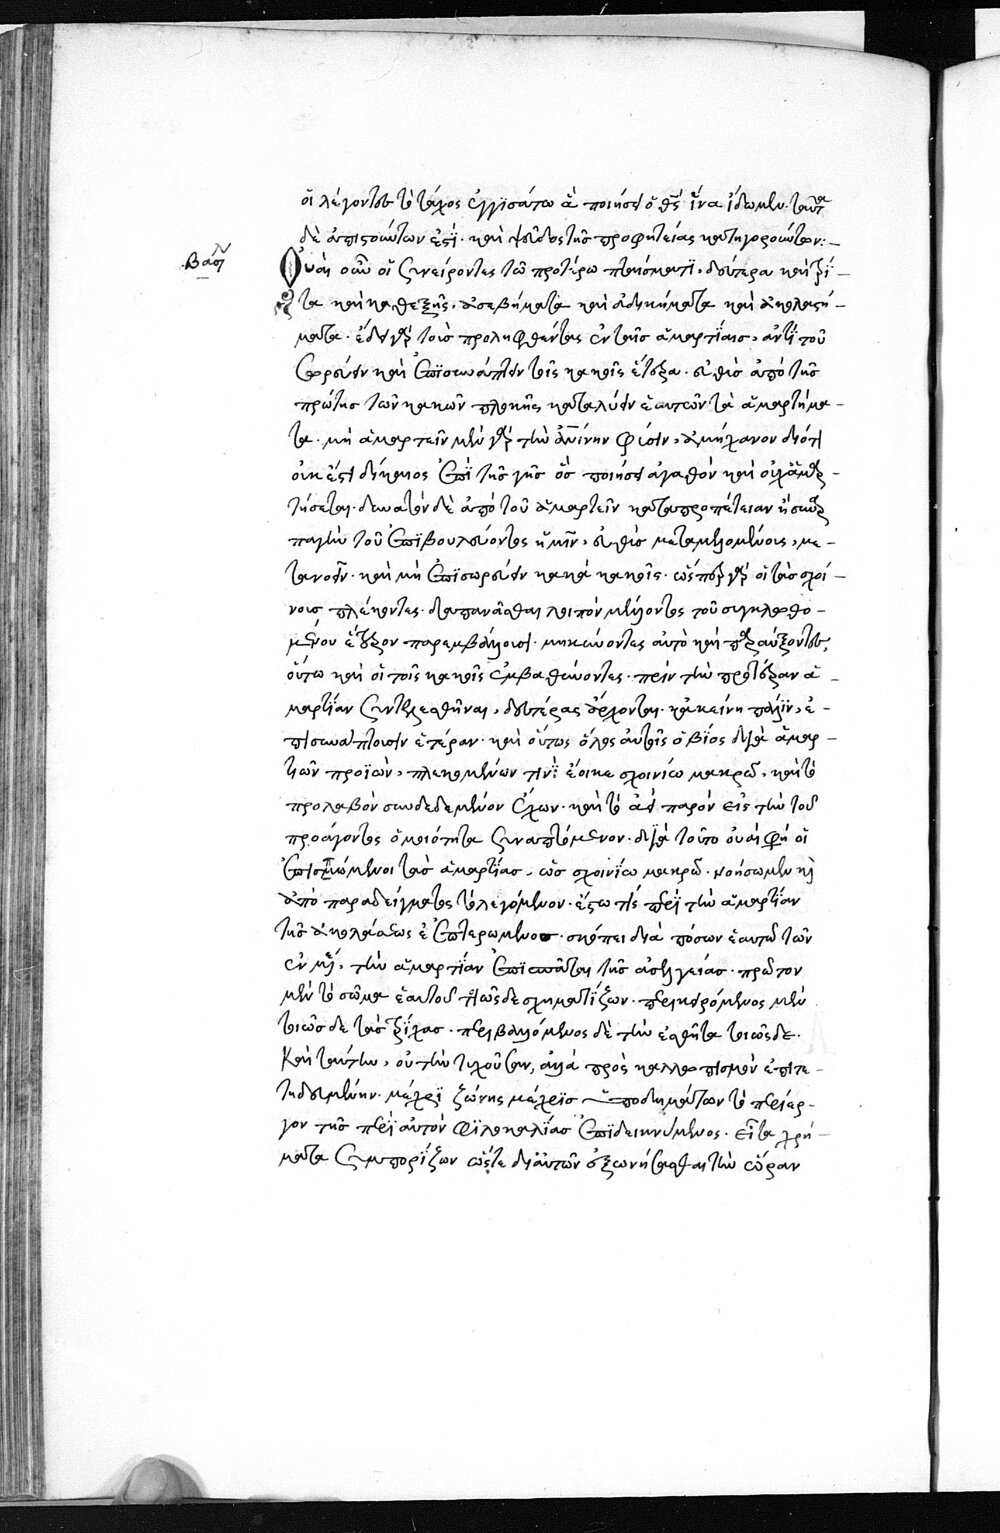 οἱ λέγοντες τὸ τάχος ἐγγισάτω ἃ ποιήσει ὁ θς ἵνα ἴδωμεν· ταῦτα
δὲ ἀπιστούντων ἐστὶ· καὶ ψεῦδος τῆς προφητείας κατηγορούντων:
Βασι
Οὐαὶ οὖν οἱ συνείροντες τῷ προτέρω πταίσματι, δεύτερα καὶ τρί-
τα καὶ καθεξῆς, ἀσεβήματα καὶ ἀδικήματα καὶ ἀκολαστή-
ματα· ἔδει γὰρ τοὺς προληφθέντας ἐν ταῖς ἁμαρτίαις, ἀντὶ τοῦ
σωρεύειν καὶ ἐπισυνάπτειν τοῖς κακοῖς ἕτερα· εὐθὺς ἀπὸ τῆς
πρώτης τῶν κακῶν πλοκῆς καταλύειν ἑαυτῶν τὰ ἁμαρτήμα-
τα· μὴ ἁμαρτεῖν μὲν γὰρ τὴν ἀνίνην φύσιν, ἀμήχανον διότι
οὐκ ἔστι δίκαιος ἐπὶ τῆς γῆς ὃς ποιήσει ἀγαθὸν καὶ οὐχ ἁμαρ-
τήσεται· δυνατὸν δὲ ἀπὸ τοῦ ἁμαρτεῖν κατὰ προπέτειαν ἢ συναρ
παγὴν τοῦ ἐπιβουλεύοντος ἡμῖν, εὐθὺς μεταμελομένους, με-
τανοεῖν· καὶ μὴ ἐπισωρεύειν κακὰ κακοῖς· ὥσπερ γὰρ οἱ τὰς σχοί-
νους πλέκοντες· δαπανᾶσθαι λοιπὸν μέλλοντος τοῦ συγκλωθο-
μένου ἕτερον παρεμβάλλουσι· μηκύνοντες αὐτὸ καὶ παραύξοντες,
οὕτω καὶ οἱ τοῖς κακοῖς ἐμβαθύνοντες· πρὶν τὴν προτέραν ἁ-
μαρτίαν συντελεσθῆναι, δευτέρας ἄρχονται· κἀκείνη πάλιν, ἐ-
πισυνάπτουσιν ἑτέραν· καὶ οὕτως ὅλος αὐτοῖς ὁ βίος διὰ ἁμαρ-
τιῶν προϊὼν, πλεκομένων τινὶ ἔοικε σχοινίω μακρῷ, καὶ τὸ
προλαβὸν συνδεδεμένον ἔχων· καὶ τὸ ἀεὶ παρὸν εἰς τὴν τοῦ
προάγοντος ὁμοιότητα συναπτόμενον· διὰ τοῦτο οὐαί φη οἱ
ἐπισπώμενοι τὰς ἁμαρτίας, ὡς σχοινίω μακρῷ· νοήσωμεν καὶ
ἀπὸ παραδείγματος τὸ λεγόμενον· ἔστω τίς περὶ τὴν ἁμαρτίαν
τῆς ἀκολάσεως ἐπτερωμένος· σκόπει διὰ πόσων ἑαυτῷ τῶν
ἐν μέσω, τὴν ἁμαρτίαν ἐπισπᾶται τῆς ἀσελγείας· πρῶτον
μὲν τὸ σῶμα ἑαυτοῦ πῶς δε σχηματίζων· περικειρόμενος μὲν
τοιῶς δε τὰς τρίχας· περιβαλλόμενος δὲ τὴν ἐσθῆτα τοιῶς δε·
καὶ ταύτην, οὐ τὴν τυχοῦσαν, ἀλλὰ πρὸς καλλωπισμὸν ἐπιτε-
τηδευμένην· μέχρι ζώνης μέχρις ὑποδημάτων τὸ περίερ-
γον τῆς περὶ αὐτὸν φιλοκαλίας ἐπιδεικνύμενος· εἶτα χρή-
ματα συμπορίζων ὥστε δι αὐτῶν ἐξωνήσασθαι τὴν ὥραν